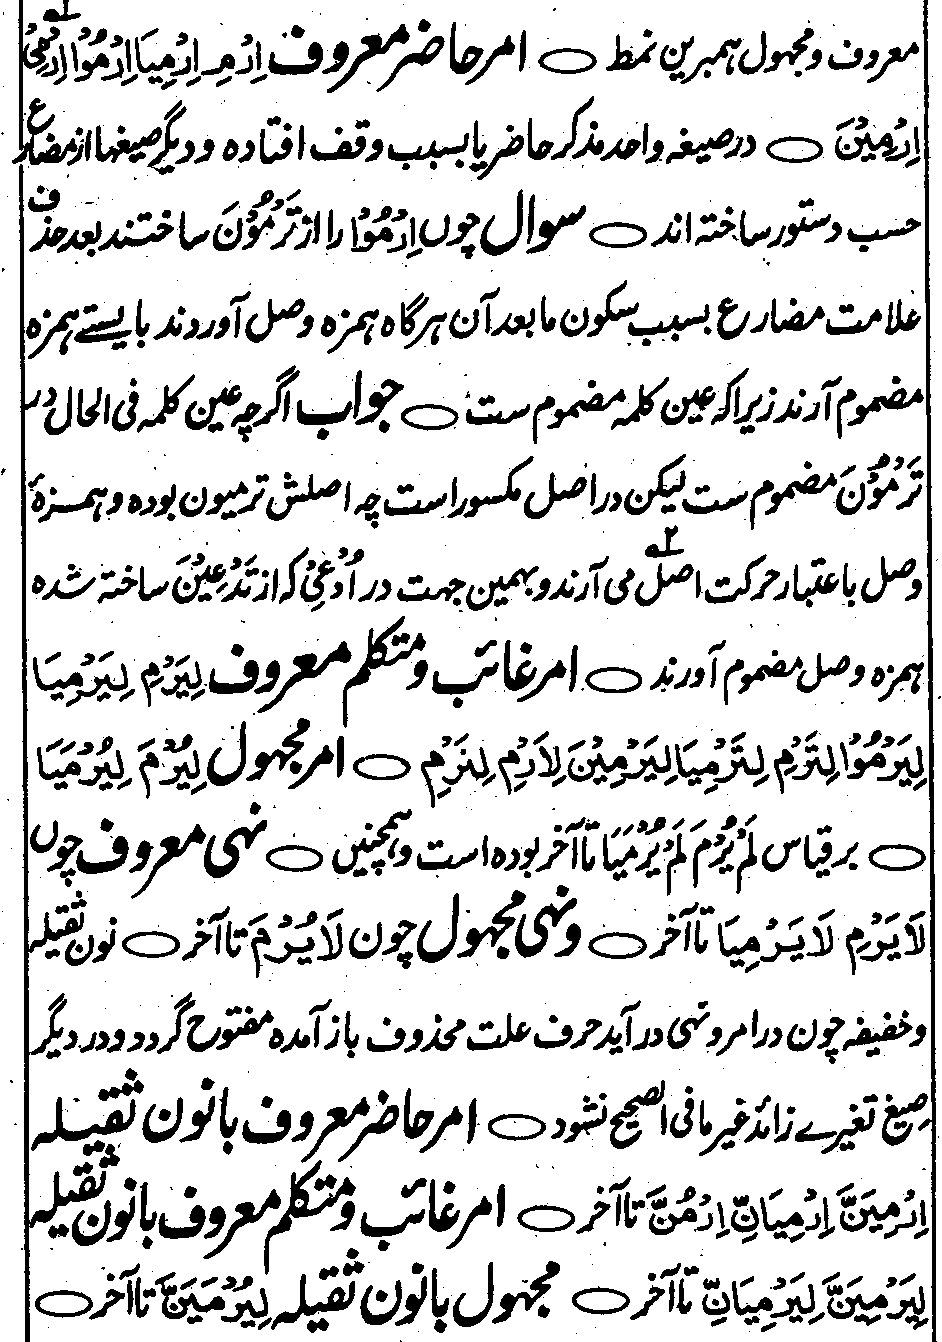 معروف و مجہول ہمبرین نمط ○ امر حاضر معروف اِرْمِ اِرْمِیَا اِرْمُوْا اِرْمِیْ
اِرْمِیْنَ ○ در صیغہ واحد مذکر حاضر یا بسبب وقف افتادہ و دیگر صیغہا از مضارع
حسب دستور ساختہ اند ○ سوال چوں اِرْمُوْا را از تَرْمُوْنَ ساختند بعد حذف
علامت مضارع بسبب سکون ما بعد آن ہرگاہ ہمزہ وصل آوردند بایستے ہمزہ
مضموم آرند زیراکہ عین کلمہ مضموم ست ○ جواب اگرچہ عین کلمہ فی الحال در
تَرْمُوْنَ مضموم ست لیکن در اصل مکسور است چہ اصلش ترمیون بودہ و ہمزۂ
وصل باعتبار حرکت اصل می آرند و بہمین جہت در اُدْعِیْ کہ از تَدْعِیْنَ ساختہ شدہ
ہمزہ وصل مضموم آورند ○ امر غائب و متکلم معروف لِیَرْمِ لِیَرْمِیَا
لِیَرْمُوْا لِتَرْمِ لِتَرْمِیَا لِیَرْمِیْنَ لِاَرْمِ لِنَرْمِ ○ امر مجہول لِیُرْمَ لِیُرْمَیَا
○ بر قیاس لَمْ یُرْمَ لَمْ یُرْمَیَا تا آخر بودہ است و ہمچنیں ○ نہی معروف چوں
لَا یَرْمِ لَا یَرْمِیَا تا آخر ○ و نہی مجہول چون لَا یُرْمَ تا آخر ○ نون ثقیلہ
و خفیفہ چون در امر و نہی در آید حرف علت محذوف باز آمدہ مفتوح گردد و در دیگر
صیغ تغیرے زائد غیر ما فی الصحیح نشود ○ امر حاضر معروف بانون ثقیلہ
اِرْمِیَنَّ اِرْمِیَانِّ اِرْمُنَّ تا آخر ○ امر غائب و متکلم معروف بانون ثقیلہ
لِیَرْمِیَنَّ لِیَرْمِیَانِّ تا آخر ○ مجہول بانون ثقیلہ لِیُرْمَیَنَّ تا آخر ○